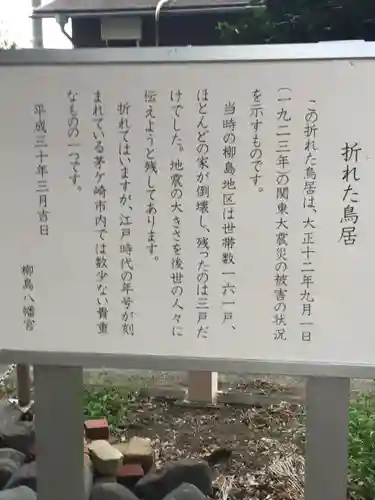 折れた鳥居
この折れた鳥居は、大正十二年九月一日
(一九二三年)の関東大震災の被害の状況
を示すものです。
当時の柳島地区は世帯数一六一戸、
ほとんどの家が倒壊し、残ったのは三戸だ
けでした。地震の大きさを後世の人々に
伝えようと残してあります。
折れてはいますが、江戸時代の年号が刻
まれている茅ヶ崎市内では数少ない貴重
なものの一つです。
平成三十年三月吉日
柳島八幡宮